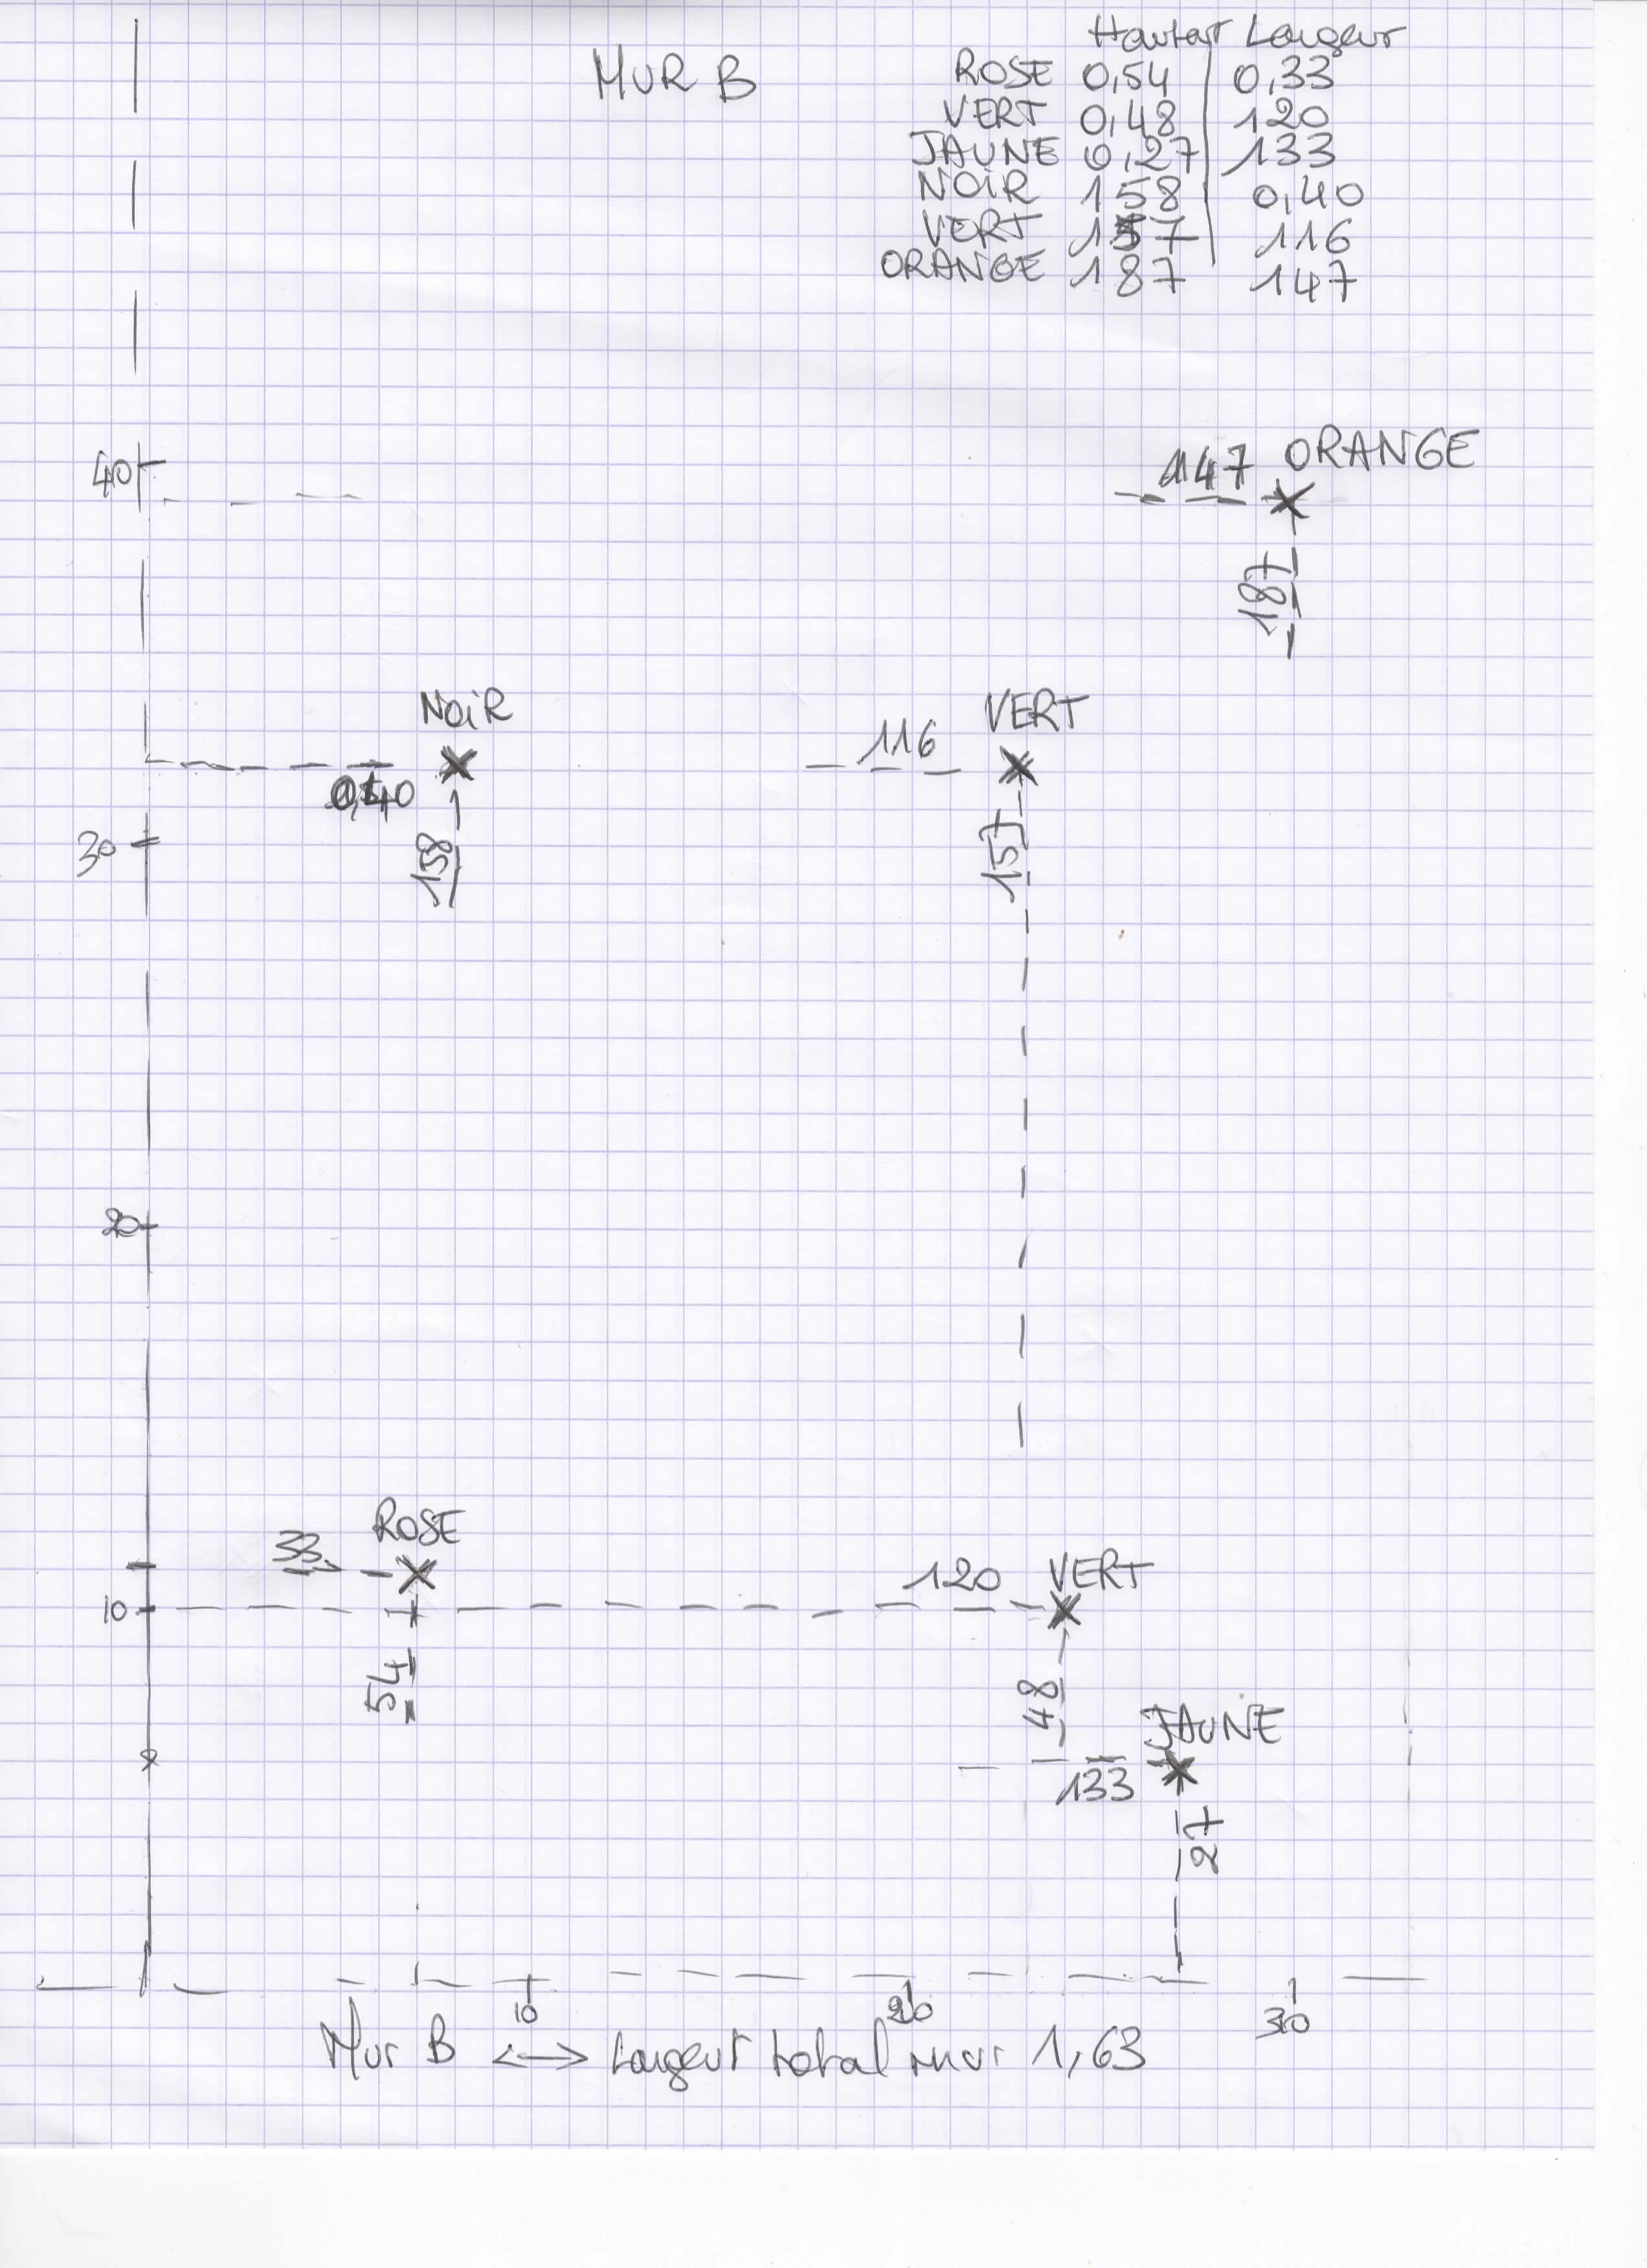 Hauteur Largeur
MUR B
ROSE 0,54 0,33
VERT 0,48 120
JAUNE 0,27 133
NOIR 158 0,40
VERT 157 116
ORANGE 187 147
40
147 ORANGE
187
NOIR
VERT
116
0,40
158
157
30
20
ROSE
33
VERT
120
10
54
48
JAUNE
133
27
10
20
30
Mur B <--> Largeur total mur 1,63